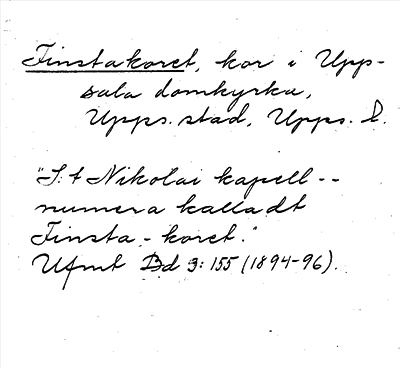 Finstakoret, kor i Upp-
sala domkyrka,
Upps. stad, Upps. l.
"S:t Nikolai kapell --
numera kalladt
Finsta-koret."
Ufmt Bd 3:155 (1894-96).